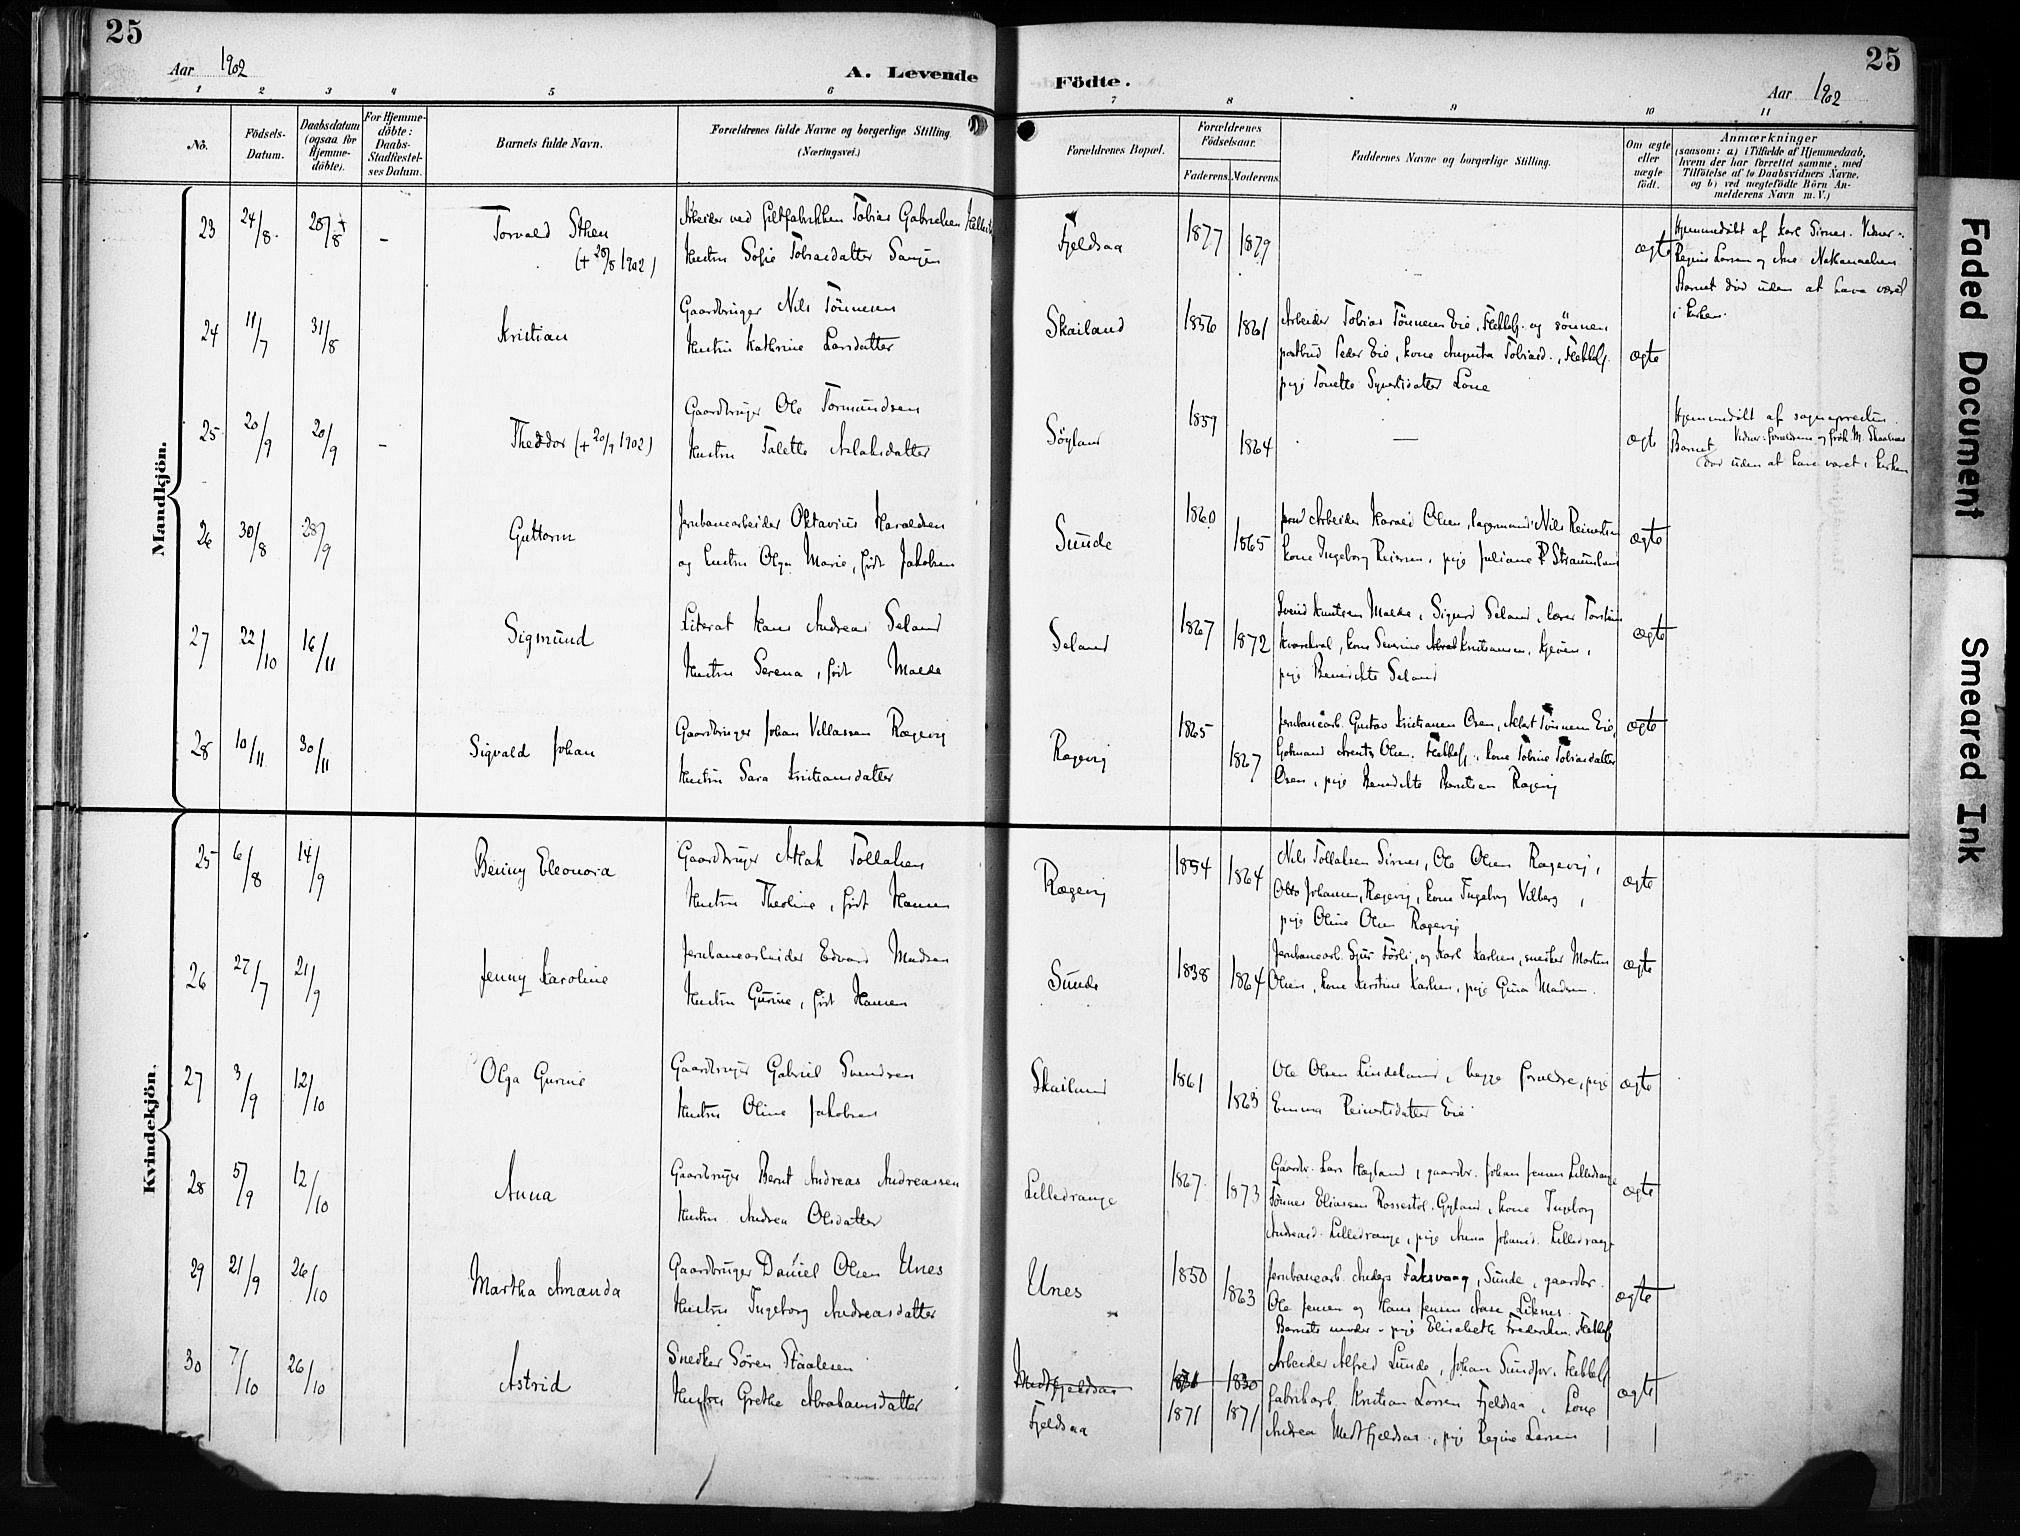 25
Aar 1902
A. Levende
1 2 3 4 5 6
No.
Födsels-Datum.
Daabsdatum (ogsaa for Hjemme-döbte).
For Hjemme-döbte: Daabs-Stadfæstel-ses Datum.
Barnets fulde Navn.
Forældrenes fulde Navne og borgerlige Stilling. (Næringsvei.)
Födte.
25
Aar 1902
7 8 9 10 11
Forældrenes Bopæl.
Forældrenes Födselsaar.
Faderens. Moderens.
Faddernes Navne og borgerlige Stilling.
Om ægte eller uægte født.
Anmærkninger
(saasom: a) i Tilfælde af Hjemmedaab, hvem der har forrettet samme, med Tilföielse af to Daabsvidners Navne, og b) ved uægtefödte Börn An-melderens Navn m. V.)
Mandkjön.
23 24/8 28/8 + - Torvald Sthen
(+ 28/8 1902)
Arbeider ved Tobias Gabrielsen
Hustru Sofie Tobiasdatter
Fjeldsaa 1877 1879 - ægte
Hjemmedöbt af Karl Sirnes. Vidner:
Regine Larsen og Ane Nathanaelsen
Barnet död uden at have været
i kirken.
24 11/7 31/8 Kristian
Gaardbruger Nils Tönnesen
Hustru Kathrine Larsdatter
Skailand 1856 1861
Arbeider Tobias Tönnesen Eie, Flekkefj. og sönnen
postbud Peder Eie, kone Augusta Tobiasd., Flekkefj.
pige Tonette Syvertsdatter Lone
ægte
25 20/9 20/9 - Theodor (+ 20/9 1902)
Gaardbruger Ole Tormundsen
Hustru Talette Aslaksdatter
Söyland 1859 1864 — ægte
Hjemmedöbt af sognepresten.
Vidner: forældrene og frök. M.
Barnet död uden at have været i kirken
26 30/8 28/9 Guttorm
Jernbanearbeider Oktavius Haraldsen
og hustru Olga Marie, födt Jakobsen
Sunde 1860 1865
Arbeider Harald Olsen, lagermand Nils Reinertsen
kone Ingeborg Reiersen, pige Juliane P Straumland
ægte
27 22/10 16/11 Sigmund
Literat Hans Andreas Seland
Hustru Serena, födt Malde
Seland 1867 1872
Svend Knutsen Malde, Sigurd Seland, lærer Torstein
Kvarekval, kone Severine Kristiansen,
pige Benedikte Seland
ægte
28 10/11 30/11 Sigvald Johan
Gaardbruger Johan Villassen Rægevig
Hustru Sara Kristiansdatter
Rægevig 1865 1867
Jernbanearb. Gustav Kristiansen Osen, Albert Tönnesen Eie,
Arents Olsen. Flekkefj., kone Tobine Tobiasdatter
Osen, pige Benedikte Berntsen Rægevig
ægte
Kvindekjön.
25 6/8 14/9 Benny Eleonora
Gaardbruger Aslak Tollaksen
Hustru Theoline, födt Hansen
Rægevig 1854 1864
Nils Tollaksen Sirnes, Ole Olsen Rægevig,
Otto Johannes, Rægevig, kone Ingeborg Vilberg,
pige Oline Olsen Rægevig
ægte
26 27/7 21/9 Jenny Karoline
Jernbanearbeider Edvard Madsen
Hustru Gurine, födt Hansen
Sunde 1838 1864
Jernbanearb. Sjur Förli, og Karl Karlsen, snedker Morten
Olsen, kone Kirstine Karlsen, pige Gina Madsen.
ægte
27 3/9 12/10 Olga Gurine
Gaardbruger Gabriel Svendsen
Hustru Oline Jakobsen
Skailand 1861 1863
Ole Olsen Lindeland, begge forældre, pige
Emma Reinertsdatter Eie
ægte
28 5/9 12/10 Anna
Gaardbruger Bernt Andreas Andreassen
Hustru Andrea Olsdatter
Lilledrange 1867 1873
Gaardbr. Lars Hægland, gaardbr. Johan Jensen Lilledrange
Tönnes Eliassen Rossestöl. Gyland, kone Ingeborg
Andreasd. Lilledrange, pige Anna Johansd. Lilledrange
ægte
29 21/9 26/10 Martha Amanda
Gaardbruger Daniel Olsen Unes
Hustru Ingeborg Andreasdatter
Unes 1850 1863
Jernbanearb. Anders Faksvaag, Sunde, gaardbr.
Ole Jensen og Hans Jensen Aase Liknes.
Barnets moder, pige Elisabeth Fredriksen. Flekkefj
ægte
30 7/10 26/10 Astrid
Snedker Sören Staalesen
Hustru Grethe Abrahamsdatter
Medtfjeldsaa 1830
Fjeldsaa 1871 1871
Arbeider Alfred Lunde, Johan Sundfør. Flekkefj
fabrikarb. Kristian Larsen Fjeldsaa, kone
Andrea Medtfjeldsaa, pige Regine Larsen
ægte
Faded Document
Smeared Ink